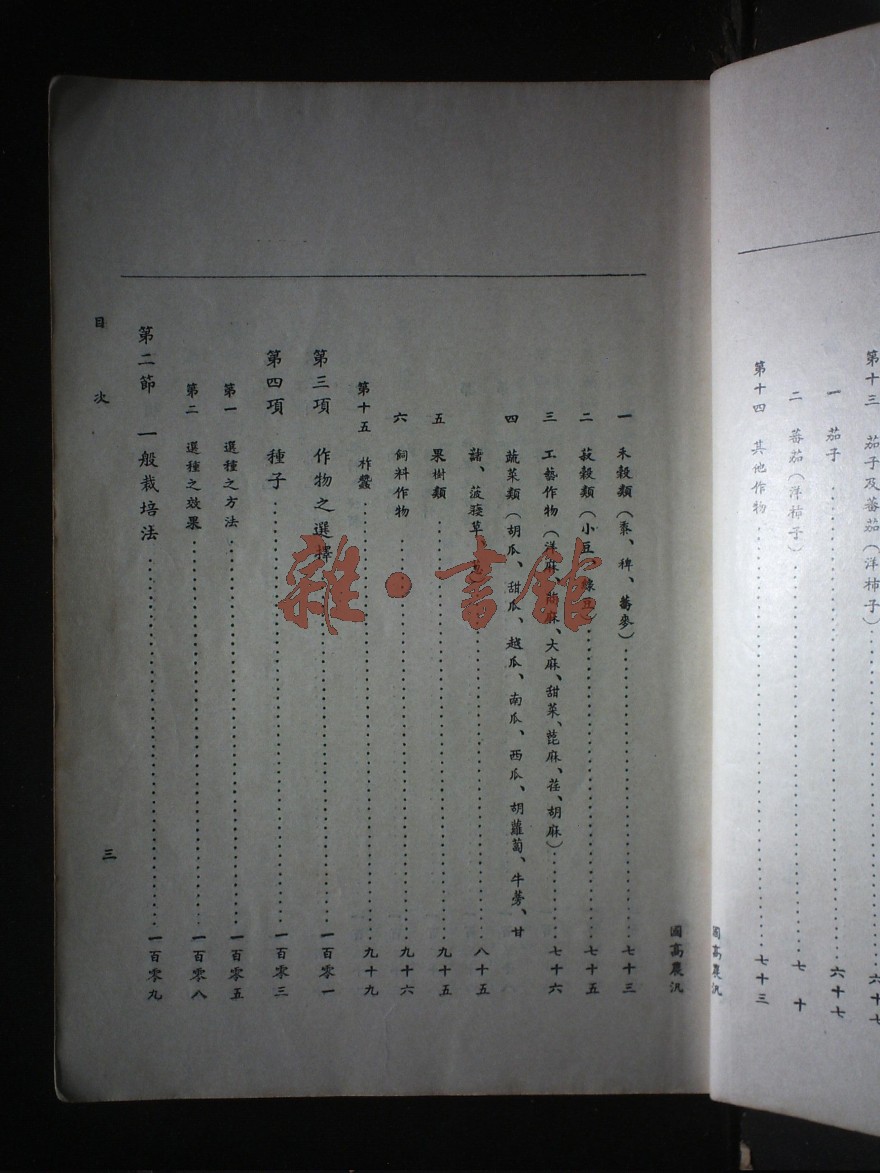 第十三 茄子及蕃茄(洋柿子)……六十七
一 茄子……六十七
二 蕃茄(洋柿子)……七十
第十四 其他作物……七十三
國高農汎
國高農汎
一 禾穀類(黍、稗、蕎麥)……七十三
二 菽穀類(小豆、綠豆)……七十五
三 工藝作物(洋麻、麻、大麻、甜菜、萞麻、荏、胡麻)……七十六
四 蔬菜類(胡瓜、甜瓜、越瓜、南瓜、西瓜、胡蘿蔔、牛蒡、甘
藷、菠薐草、……八十五
五 果樹類……九十五
六 飼料作物……九十六
第十五 柞蠶……九十九
第三項 作物之選擇……一百零一
第四項 種子……一百零三
第一 選種之方法……一百零五
第二 選種之效果……一百零八
第二節 一般栽培法……一百零九
目次
三
雜·書館